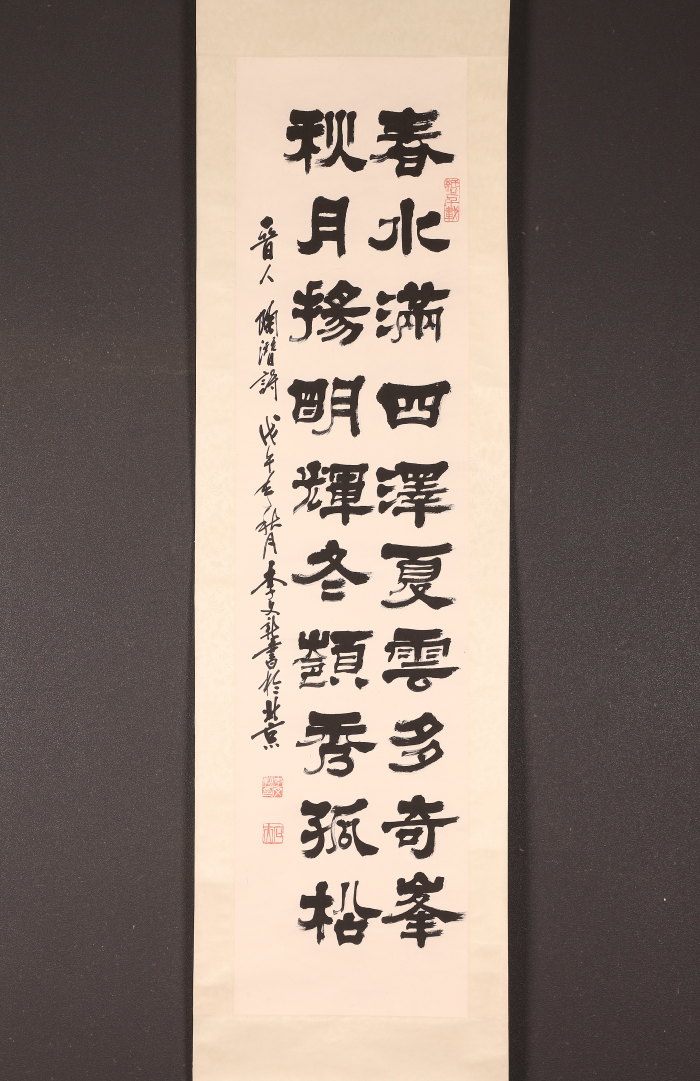 春水滿四澤夏雲多奇峯
秋月揚明輝冬嶺秀孤松
晉人陶潛詩戊午年秋月李文新書於北京